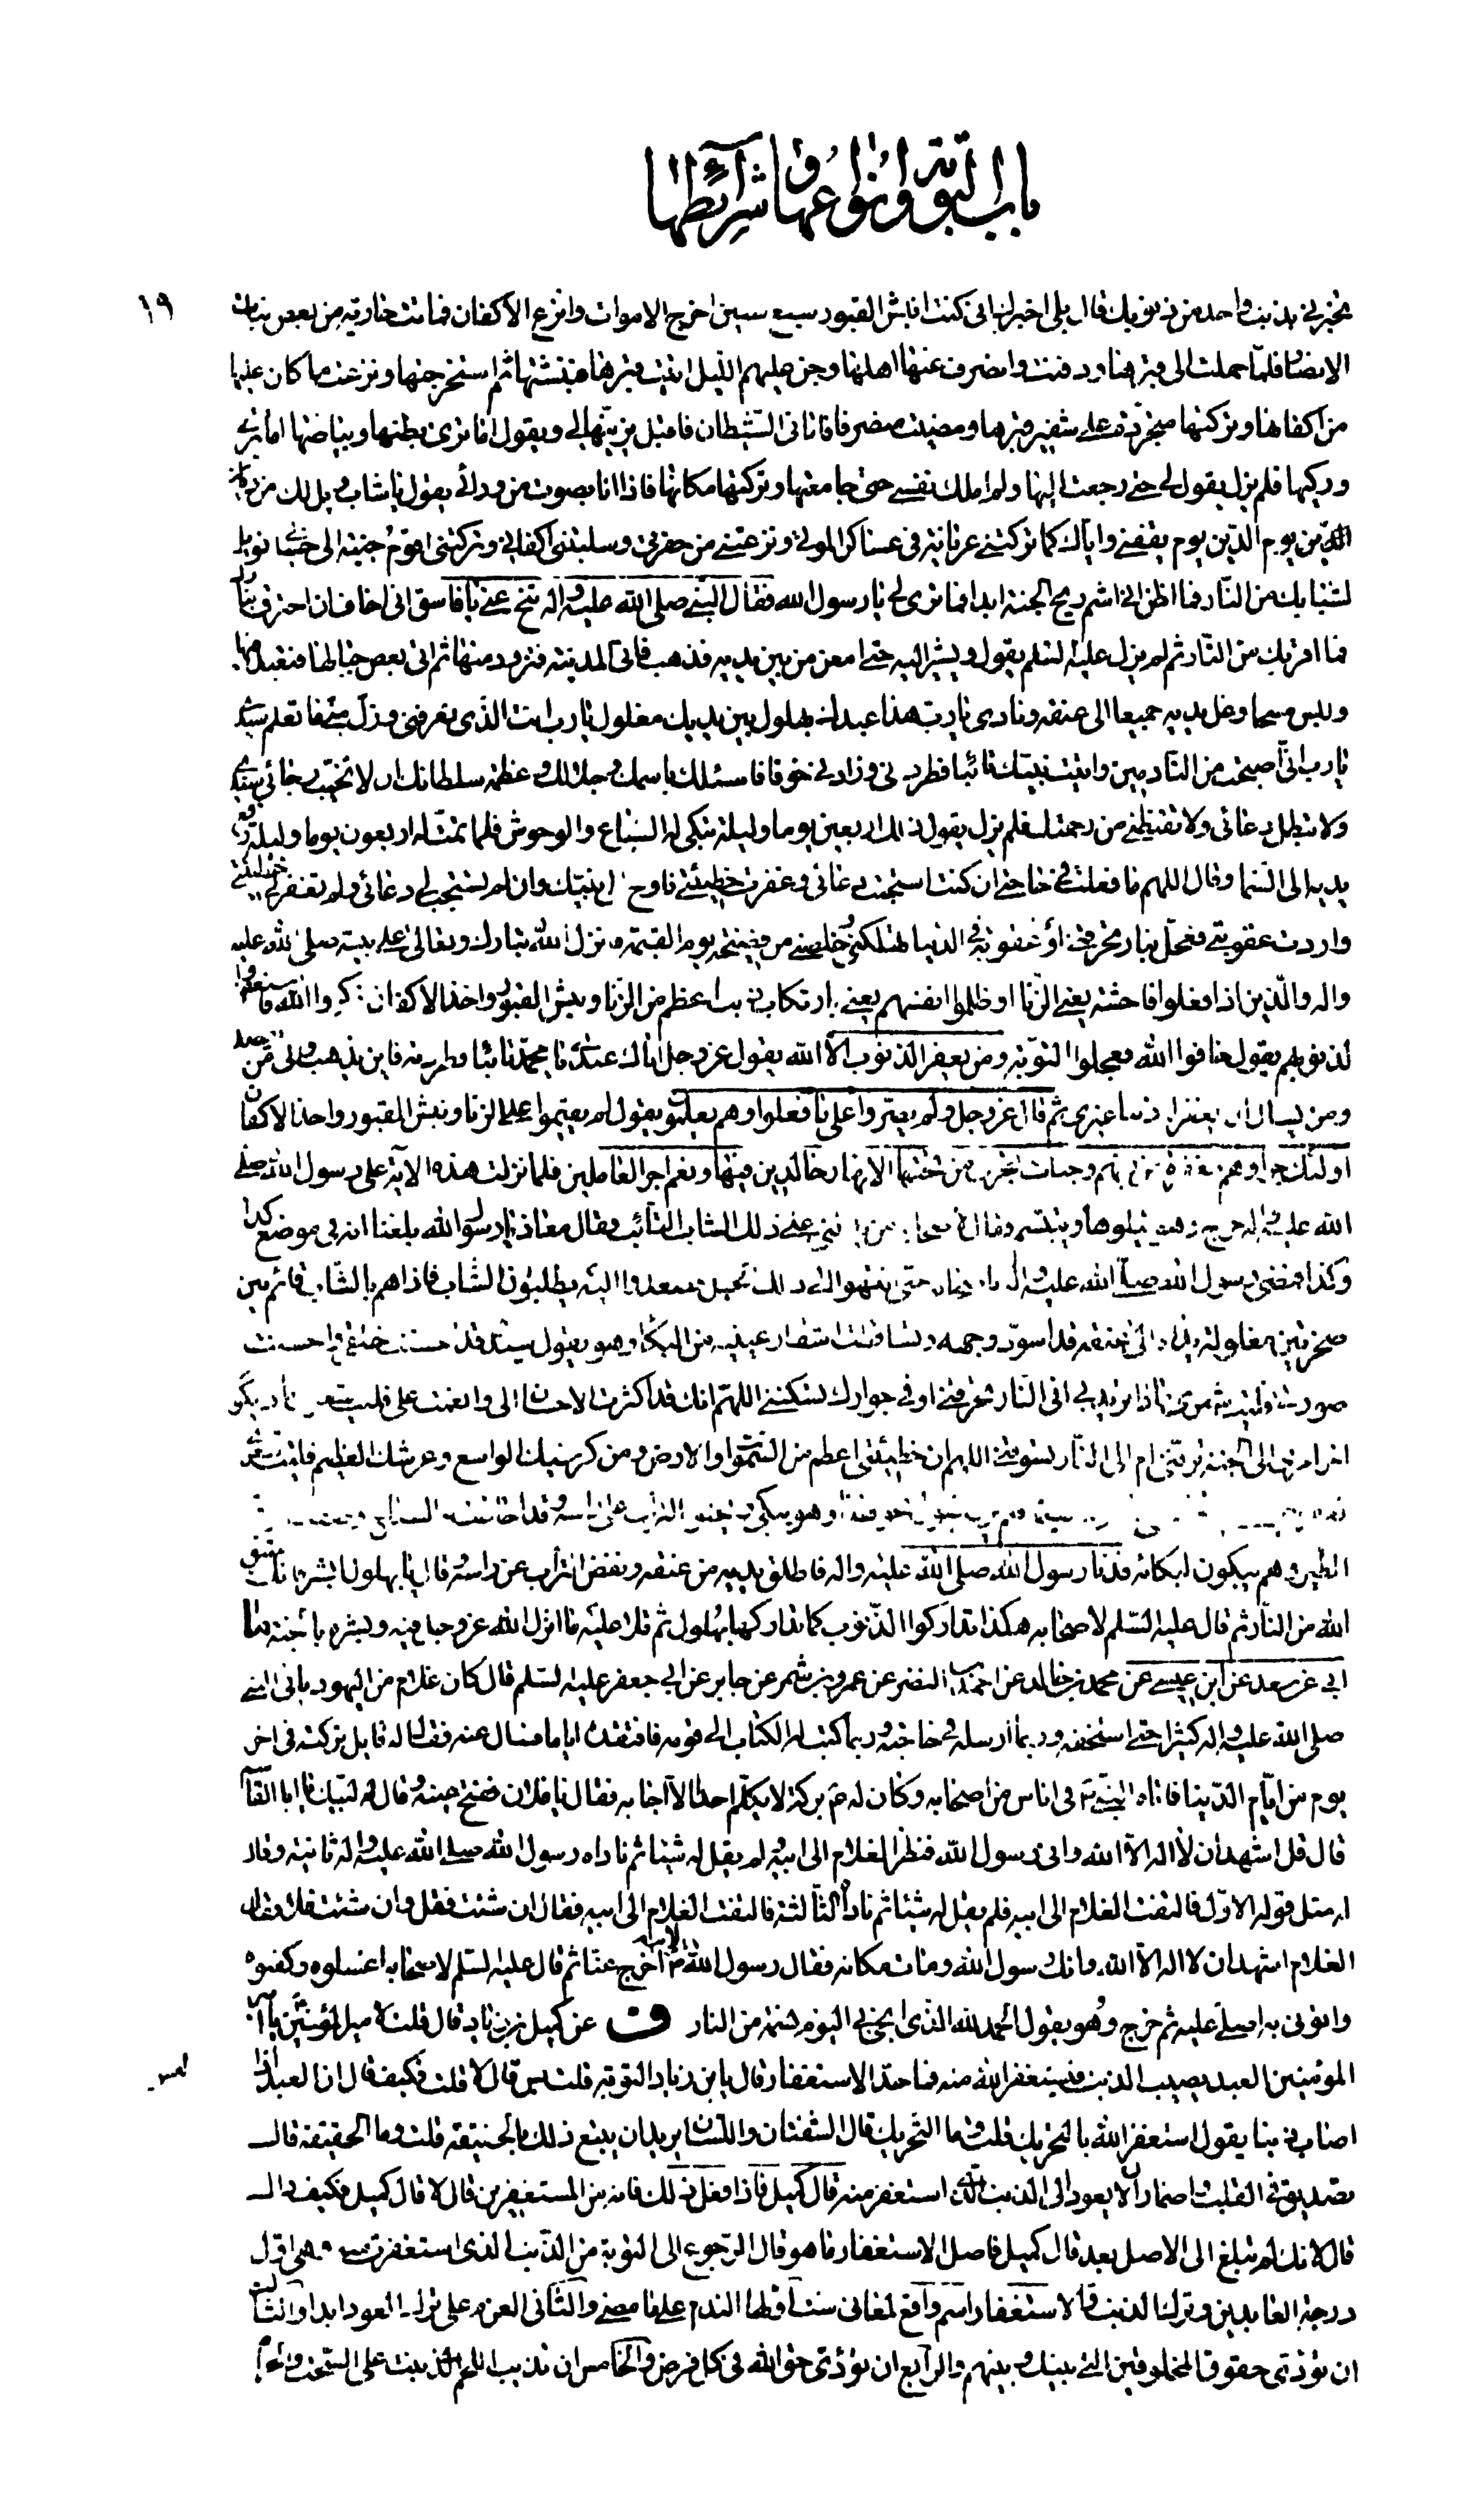 باب التوبة وانواعها وشرائطها
١٩
تخبرني بذنب واحد من ذنوبك قال بلى اخبرك اني كنت انبش القبور سبع سنين اخرج الاموات وانزع الاكفان فماتت جارية من بعض بنات
الانصار فلما حملت الى قبرها ودفنت وانصرف عنها اهلها وجن عليهم الليل اتيت قبرها فنبشتها ثم استخرجتها ونزعت ما كان عليها
من اكفانها وتركتها متجردة على شفير قبرها ومضيت منصرفا فاتاني الشيطان فاقبل يزينها لي ويقول اما ترى بطنها وبياضها اما ترى
وركيها فلم يزل يقول لي حتى رجعت اليها ولم املك نفسي حتى جامعتها وتركتها مكانها فاذا انا بصوت من ورائي يقول يا شاب ويل لك من ديان
يوم الدين يوم يقفني واياك كما تركتني عريانة في عساكر الموتى ونزعتني من حفرتي وسلبتني اكفاني وتركتني اقوم جنبة الى حسابي فويل
لشبابك من النار فما اظن اني اشم ريح الجنة ابدا فما ترى لي يا رسول الله فقال النبي صلى الله عليه واله تنح عني يا فاسق اني اخاف ان احترق بنارك
فما اقربك من النار ثم لم يزل عليه السلم يقول ويشير اليه حتى امعن من بين يديه فذهب فاتى المدينة فتزود منها ثم اتى بعض جبالها فتعبد فيها
ولبس مسحا وغل يديه جميعا الى عنقه ونادى يا رب هذا عبدك بهلول بين يديك مغلول يا رب انت الذي تعرفني وزل مني ما تعلم سيدي
يا رب اني اصبحت من النادمين واتيت نبيك تائبا فطردني وزادني خوفا فاسئلك باسمك وجلالك وعظمة سلطانك ان لا تخيب رجائي سيدي
ولا تبطل دعائي ولا تقنطني من رحمتك فلم يزل يقول ذلك اربعين يوما وليلة تبكي له السباع والوحوش فلما تمت له اربعون يوما وليلة رفع
يديه الى السماء وقال اللهم ما فعلت في حاجتي ان كنت استجبت دعائي وغفرت خطيئتي فاوح الى نبيك وان لم تستجب لي دعائي ولم تغفر لي خطيئتي
واردت عقوبتي فعجل بنار تحرقني او عقوبة في الدنيا تهلكني وخلصني من فضيحة يوم القيمة فانزل الله تبارك وتعالى على نبيه صلى الله عليه
واله والذين اذا فعلوا فاحشة يعني الزنا او ظلموا انفسهم يعني بارتكاب ذنب اعظم من الزنا ونبش القبور واخذ الاكفان ذكروا الله فاستغفروا
لذنوبهم يقول خافوا الله فعجلوا التوبة ومن يغفر الذنوب الا الله يقول عز وجل اتاك عبدي يا محمد تائبا فطردته فاين يذهب والى من يقصد
ومن يسال ان يغفر له ذنبا غيري ثم قال عز وجل ولم يصروا على ما فعلوا وهم يعلمون يقول لم يقيموا على الزنا ونبش القبور واخذ الاكفان
اولئك جزاؤهم مغفرة من ربهم وجنات تجري من تحتها الانهار خالدين فيها ونعم اجر العاملين فلما نزلت هذه الاية على رسول الله صلى
الله عليه واله خرج وهو يتلوها ويتبسم فقال لاصحابه من يدلني على ذلك الشاب التائب فقال معاذ يا رسول الله بلغنا انه في موضع كذا
وكذا فمضى رسول الله صلى الله عليه واله باصحابه حتى انتهوا الى ذلك الجبل فصعدوا اليه يطلبون الشاب فاذا هم بالشاب قائم بين
صخرتين مغلولة يداه الى عنقه قد اسود وجهه وتساقطت اشفار عينيه من البكاء وهو يقول سيدي قد احسنت خلقي واحسنت
صورتي فليت شعري ماذا تريد بي افي النار تحرقني او في جوارك تسكنني اللهم انك قد اكثرت الاحسان الي وانعمت علي فليت شعري ماذا يكون
اخر امري الى الجنة تزفني ام الى النار تسوقني اللهم ان خطيئتي اعظم من السموات والارض ومن كرسيك الواسع وعرشك العظيم فليت شعري
وهو يبكي ويحثو التراب على راسه وقد احاطت به السباع
الطير وهم يبكون لبكائه فدنا رسول الله صلى الله عليه واله فاطلق يديه من عنقه ونفض التراب عن راسه وقال يا بهلول ابشر فانك عتيق
الله من النار ثم قال عليه السلم لاصحابه هكذا تداركوا الذنوب كما تداركها بهلول ثم تلا عليه ما انزل الله عز وجل فيه وبشره بالجنة
ابي عن سعد عن ابن عيسى عن محمد بن خالد عن احمد بن النضر عن عمرو بن شمر عن جابر عن ابي جعفر عليه السلم قال كان غلام من اليهود ياتي النبي
صلى الله عليه واله كثيرا حتى استخفه وربما ارسله في حاجته وربما كتب له الكتاب الى قومه فافتقده اياما فسال عنه فقال له قائل تركته في اخر
يوم من ايام الدنيا فاتاه النبي في اناس من اصحابه وكان له بركة لا يكلم احدا الا اجابه فقال يا فلان ففتح عينه وقال لبيك يا ابا القاسم
قال قل اشهد ان لا اله الا الله واني رسول الله فنظر الغلام الى ابيه فلم يقل له شيئا ثم ناداه رسول الله صلى الله عليه واله ثانية وقال
له مثل قوله الاول فالتفت الغلام الى ابيه فلم يقل له شيئا ثم ناداه الثالثة فالتفت الغلام الى ابيه فقال ان شئت فقل وان شئت فلا فقال
الغلام اشهد ان لا اله الا الله وانك رسول الله ومات مكانه فقال رسول الله لابيه اخرج عنا ثم قال عليه السلم لاصحابه اغسلوه وكفنوه
واتوني به اصلي عليه ثم خرج وهو يقول الحمد لله الذي انجى بي اليوم نسمة من النار ف عن كميل بن زياد قال قلت لامير المؤمنين يا امير
المؤمنين العبد يصيب الذنب فيستغفر الله منه فما حد الاستغفار قال يا بن زياد التوبة قلت بس قال لا قلت فكيف قال ان العبد اذا
اصاب ذنبا يقول استغفر الله بالتحريك قلت وما التحريك قال الشفتان واللسان يريد ان يتبع ذلك بالحقيقة قلت وما الحقيقة قال
تصديق في القلب واضمار ان لا يعود الى الذنب الذي استغفر منه قال كميل فاذا فعل ذلك فانه من المستغفرين قال لا قال كميل فكيف ذاك
قال لانك لم تبلغ الى الاصل بعد قال كميل فاصل الاستغفار ما هو قال الرجوع الى التوبة من الذنب الذي استغفرت منه وهي اول
درجة العابدين وترك الذنب والاستغفار اسم واقع لمعاني ست اولها الندم على ما مضى والثاني العزم على ترك العود ابدا والثالث
ان تؤدي حقوق المخلوقين التي بينك وبينهم والرابع ان تؤدي حق الله في كل فرض والخامس ان تذيب اللحم الذي نبت على السحت